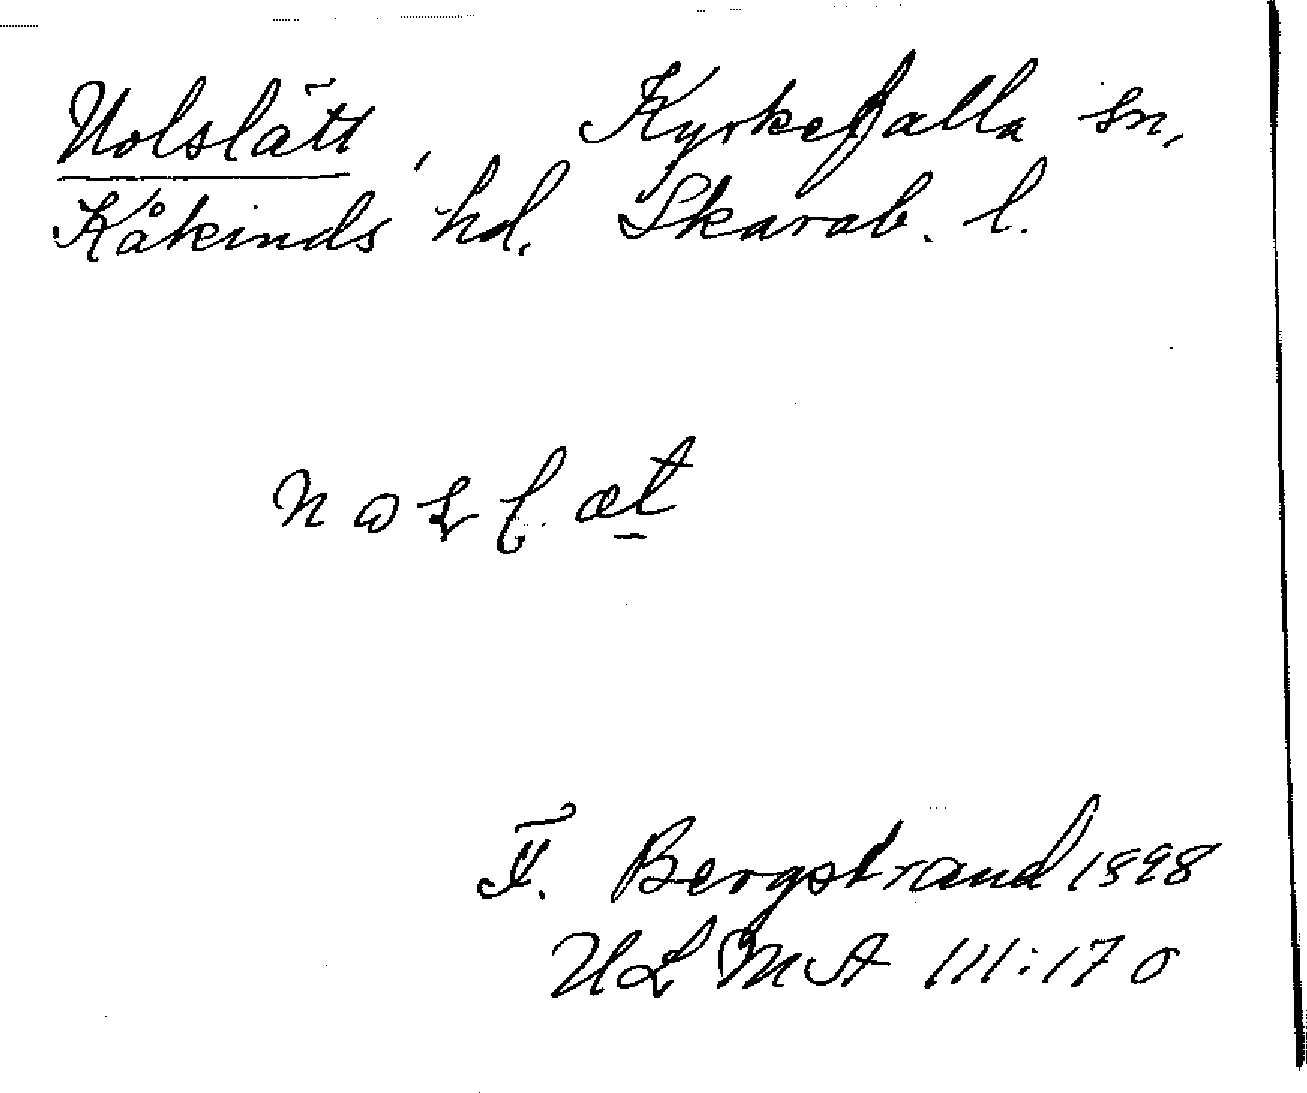 Nolslätt, Kyrkefalla sn,
Kåkinds hd. Skarab. l.
F. Bergstrand 1898
ULMA 111:17 σ